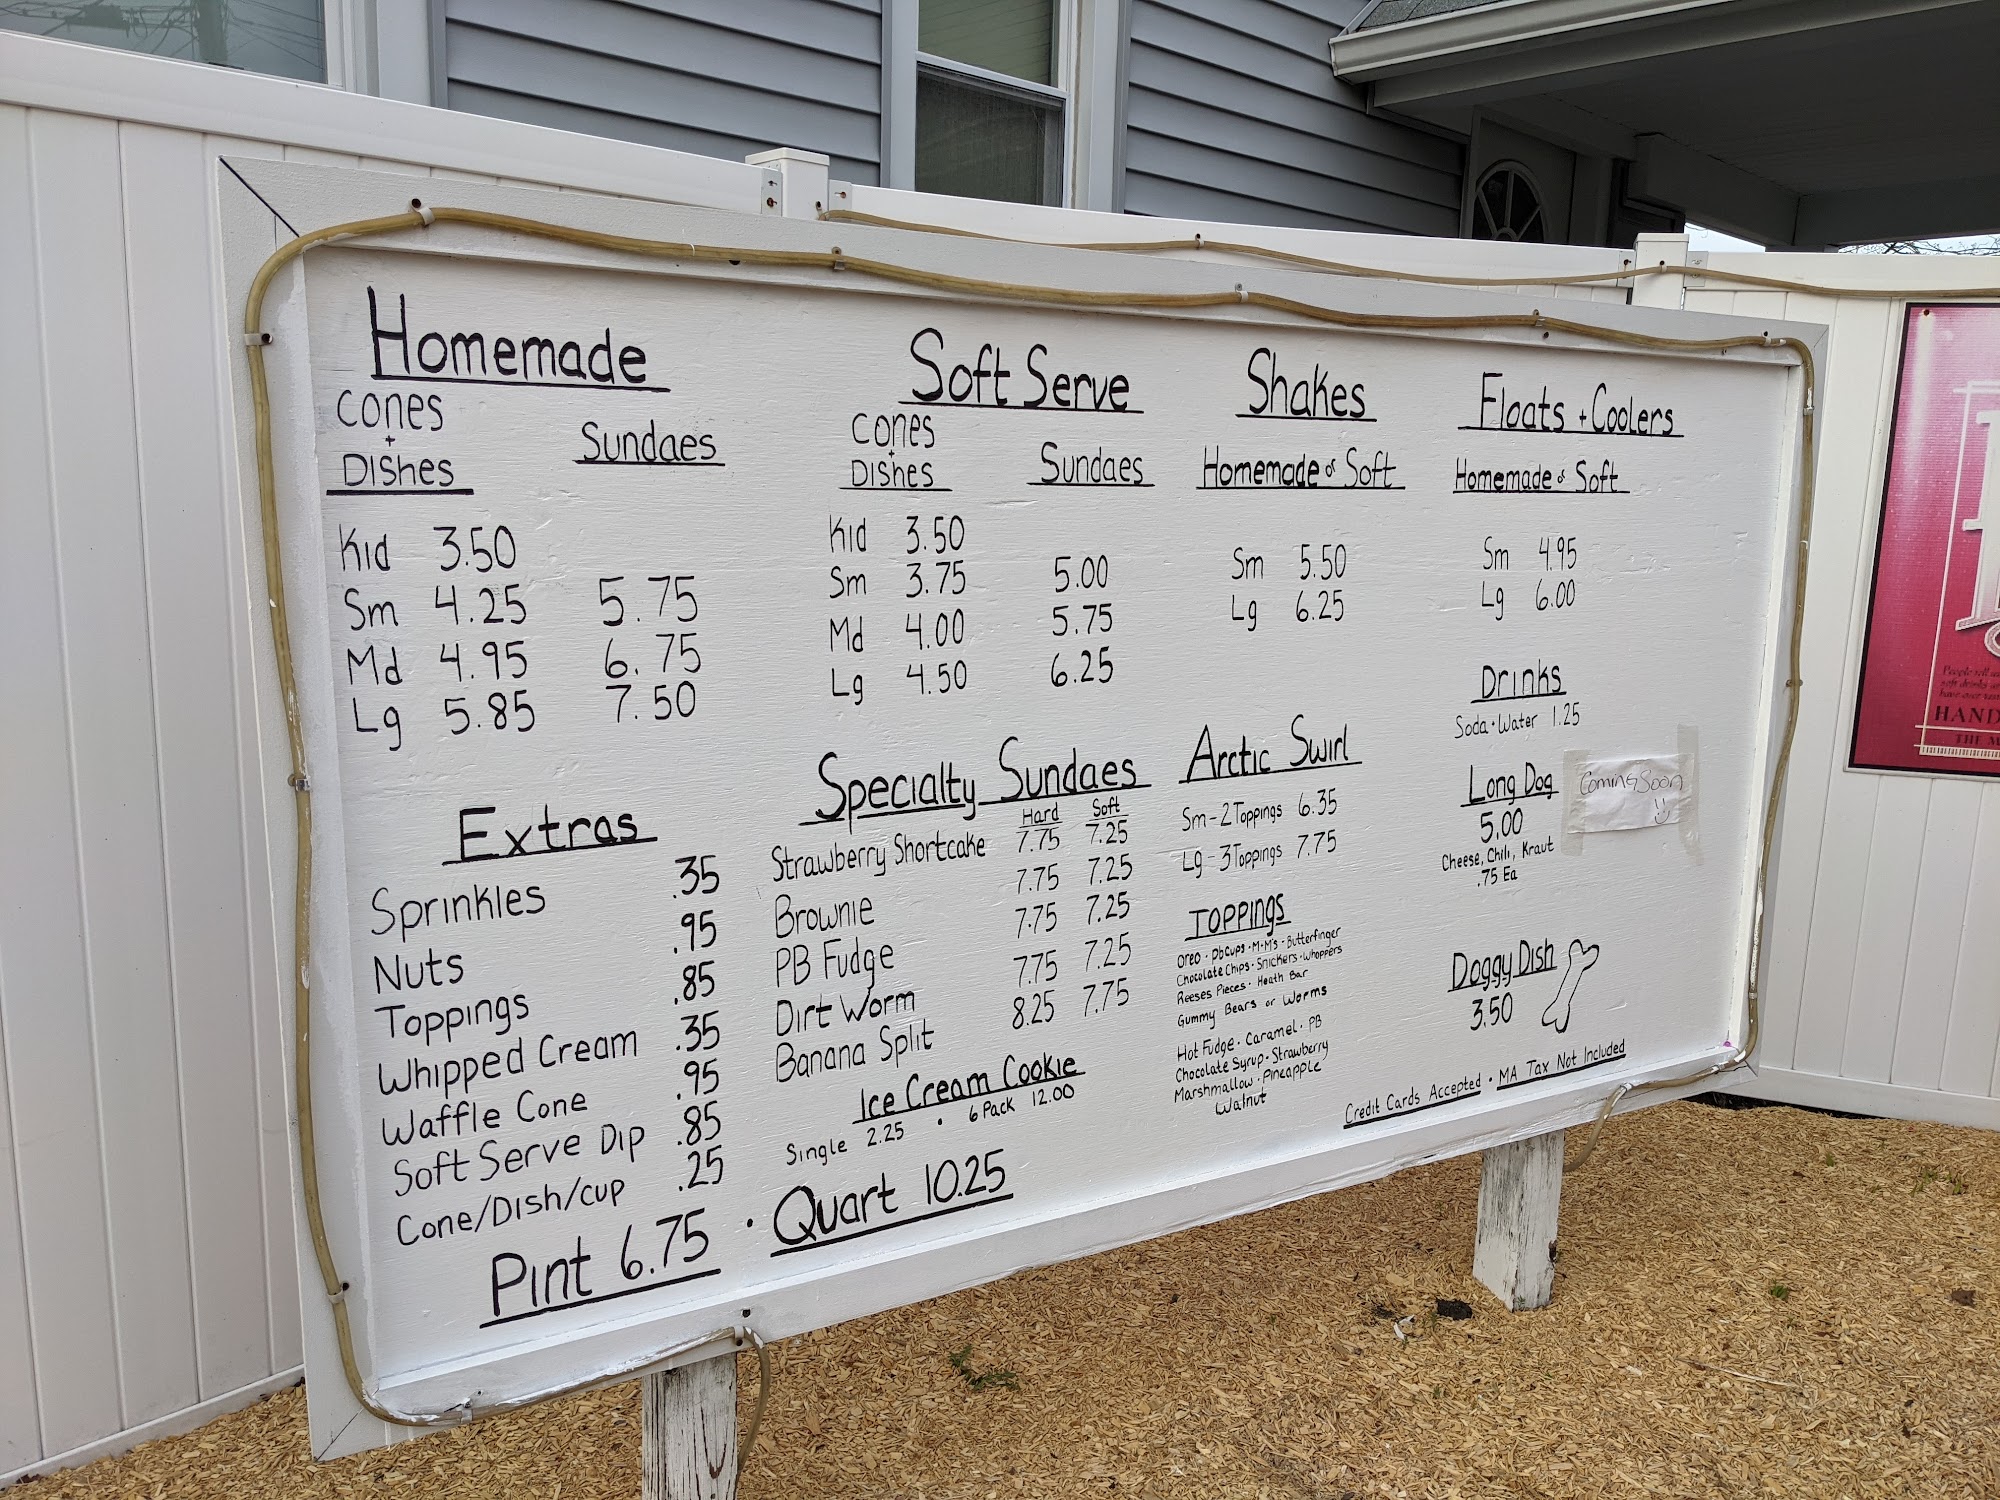 Homemade
Cones
+
Dishes
Sundaes
Kid 3.50
Sm 4.25 5.75
Md 4.95 6.75
Lg 5.85 7.50
Extras
Sprinkles .35
Nuts .95
Toppings .85
Whipped Cream .35
Waffle Cone .95
Soft Serve Dip .85
Cone/Dish/cup .25
Pint 6.75 · Quart 10.25
Soft Serve
Cones
+
Dishes
Sundaes
Kid 3.50
Sm 3.75 5.00
Md 4.00 5.75
Lg 4.50 6.25
Specialty Sundaes
Hard Soft
Strawberry Shortcake 7.75 7.25
Brownie 7.75 7.25
PB Fudge 7.75 7.25
Dirt Worm 7.75 7.25
Banana Split 8.25 7.75
Ice Cream Cookie
Single 2.25 · 6 Pack 12.00
Shakes
Homemade or Soft
Sm 5.50
Lg 6.25
Arctic Swirl
Sm-2 Toppings 6.35
Lg-3 Toppings 7.75
Toppings
Oreo · Pbcups · M+M's · Butterfinger
Chocolate Chips · Snickers · Whoppers
Reeses Pieces · Heath Bar
Gummy Bears or Worms
Hot Fudge · Caramel · PB
Chocolate Syrup · Strawberry
Marshmallow · Pineapple
Walnut
Floats + Coolers
Homemade or Soft
Sm 4.95
Lg 6.00
Drinks
Soda · Water 1.25
Long Dog
Coming Soon
5.00
Cheese, Chili, Kraut
.75 Ea
Doggy Dish
3.50
Credit Cards Accepted · MA Tax Not Included
HAND